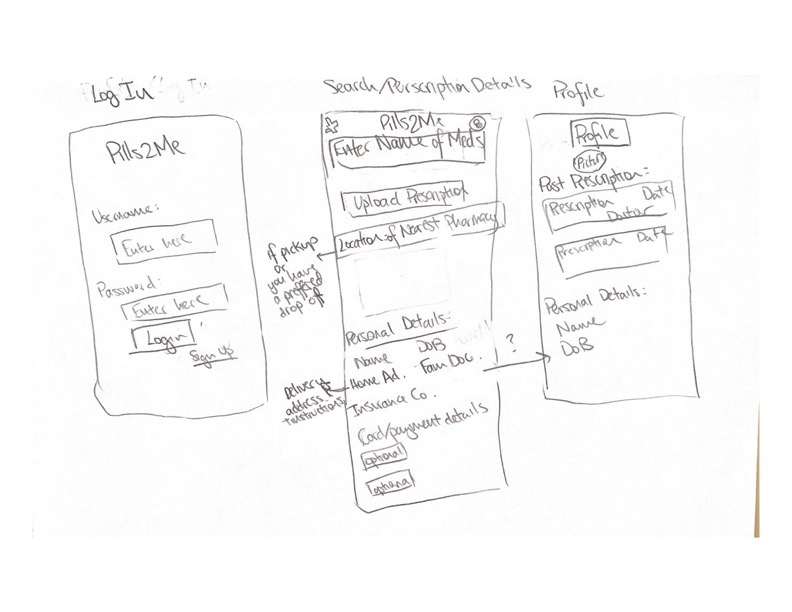 Log In
Pills2Me
Username:
Enter here
Password:
Enter here
Login
Sign Up
Search/Perscription Details
Pills2Me
Enter Name of Meds
Upload Prescription
Location of Nearest Pharmacy
If pickup
or
you have
a preffered
drop off
Personal Details:
Name DOB
Home Ad. Fam Doc.
Insurance Co.
Delivery
address.
Instructions
Card/payment details
optional
optional
?
Profile
Profile
Picture
Past Prescription:
Prescription Date
Doctor
Prescription Date
Personal Details:
Name
DoB